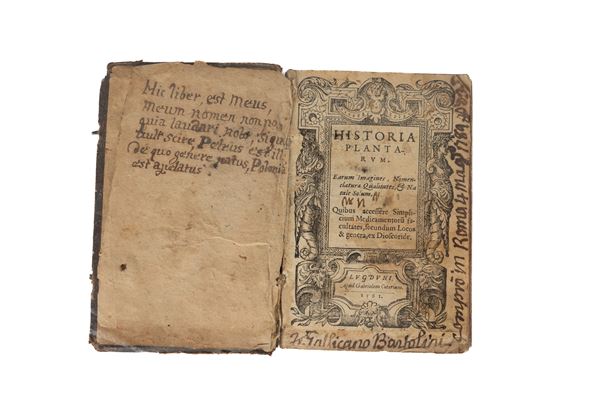 Hic liber, est meus,
meum nomen non pos
quia laudari nolo Siquis
vult scire, Petrus est ill
de quo genere natus, Polonia
est apelatus
HISTORIA
PLANTA-
RVM.
Earum Imagines, Nomen-
clatura, Qualitates, & Na-
tale Solum.
Quibus accessere Simpli-
cium Medicamentorū fa-
cultates, secundum Locos
& genera, ex Dioscoride.
LVGDVNI,
Apud Gabrielem Coterium.
1561.
Gallicano Bartolini
in Roma